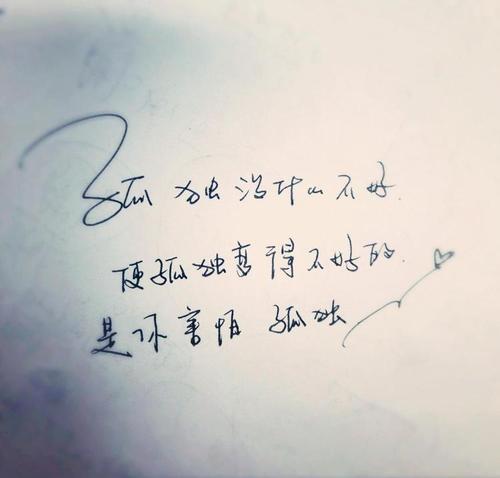 孤独没什么不好.
使孤独变得不好的.
是你害怕孤独